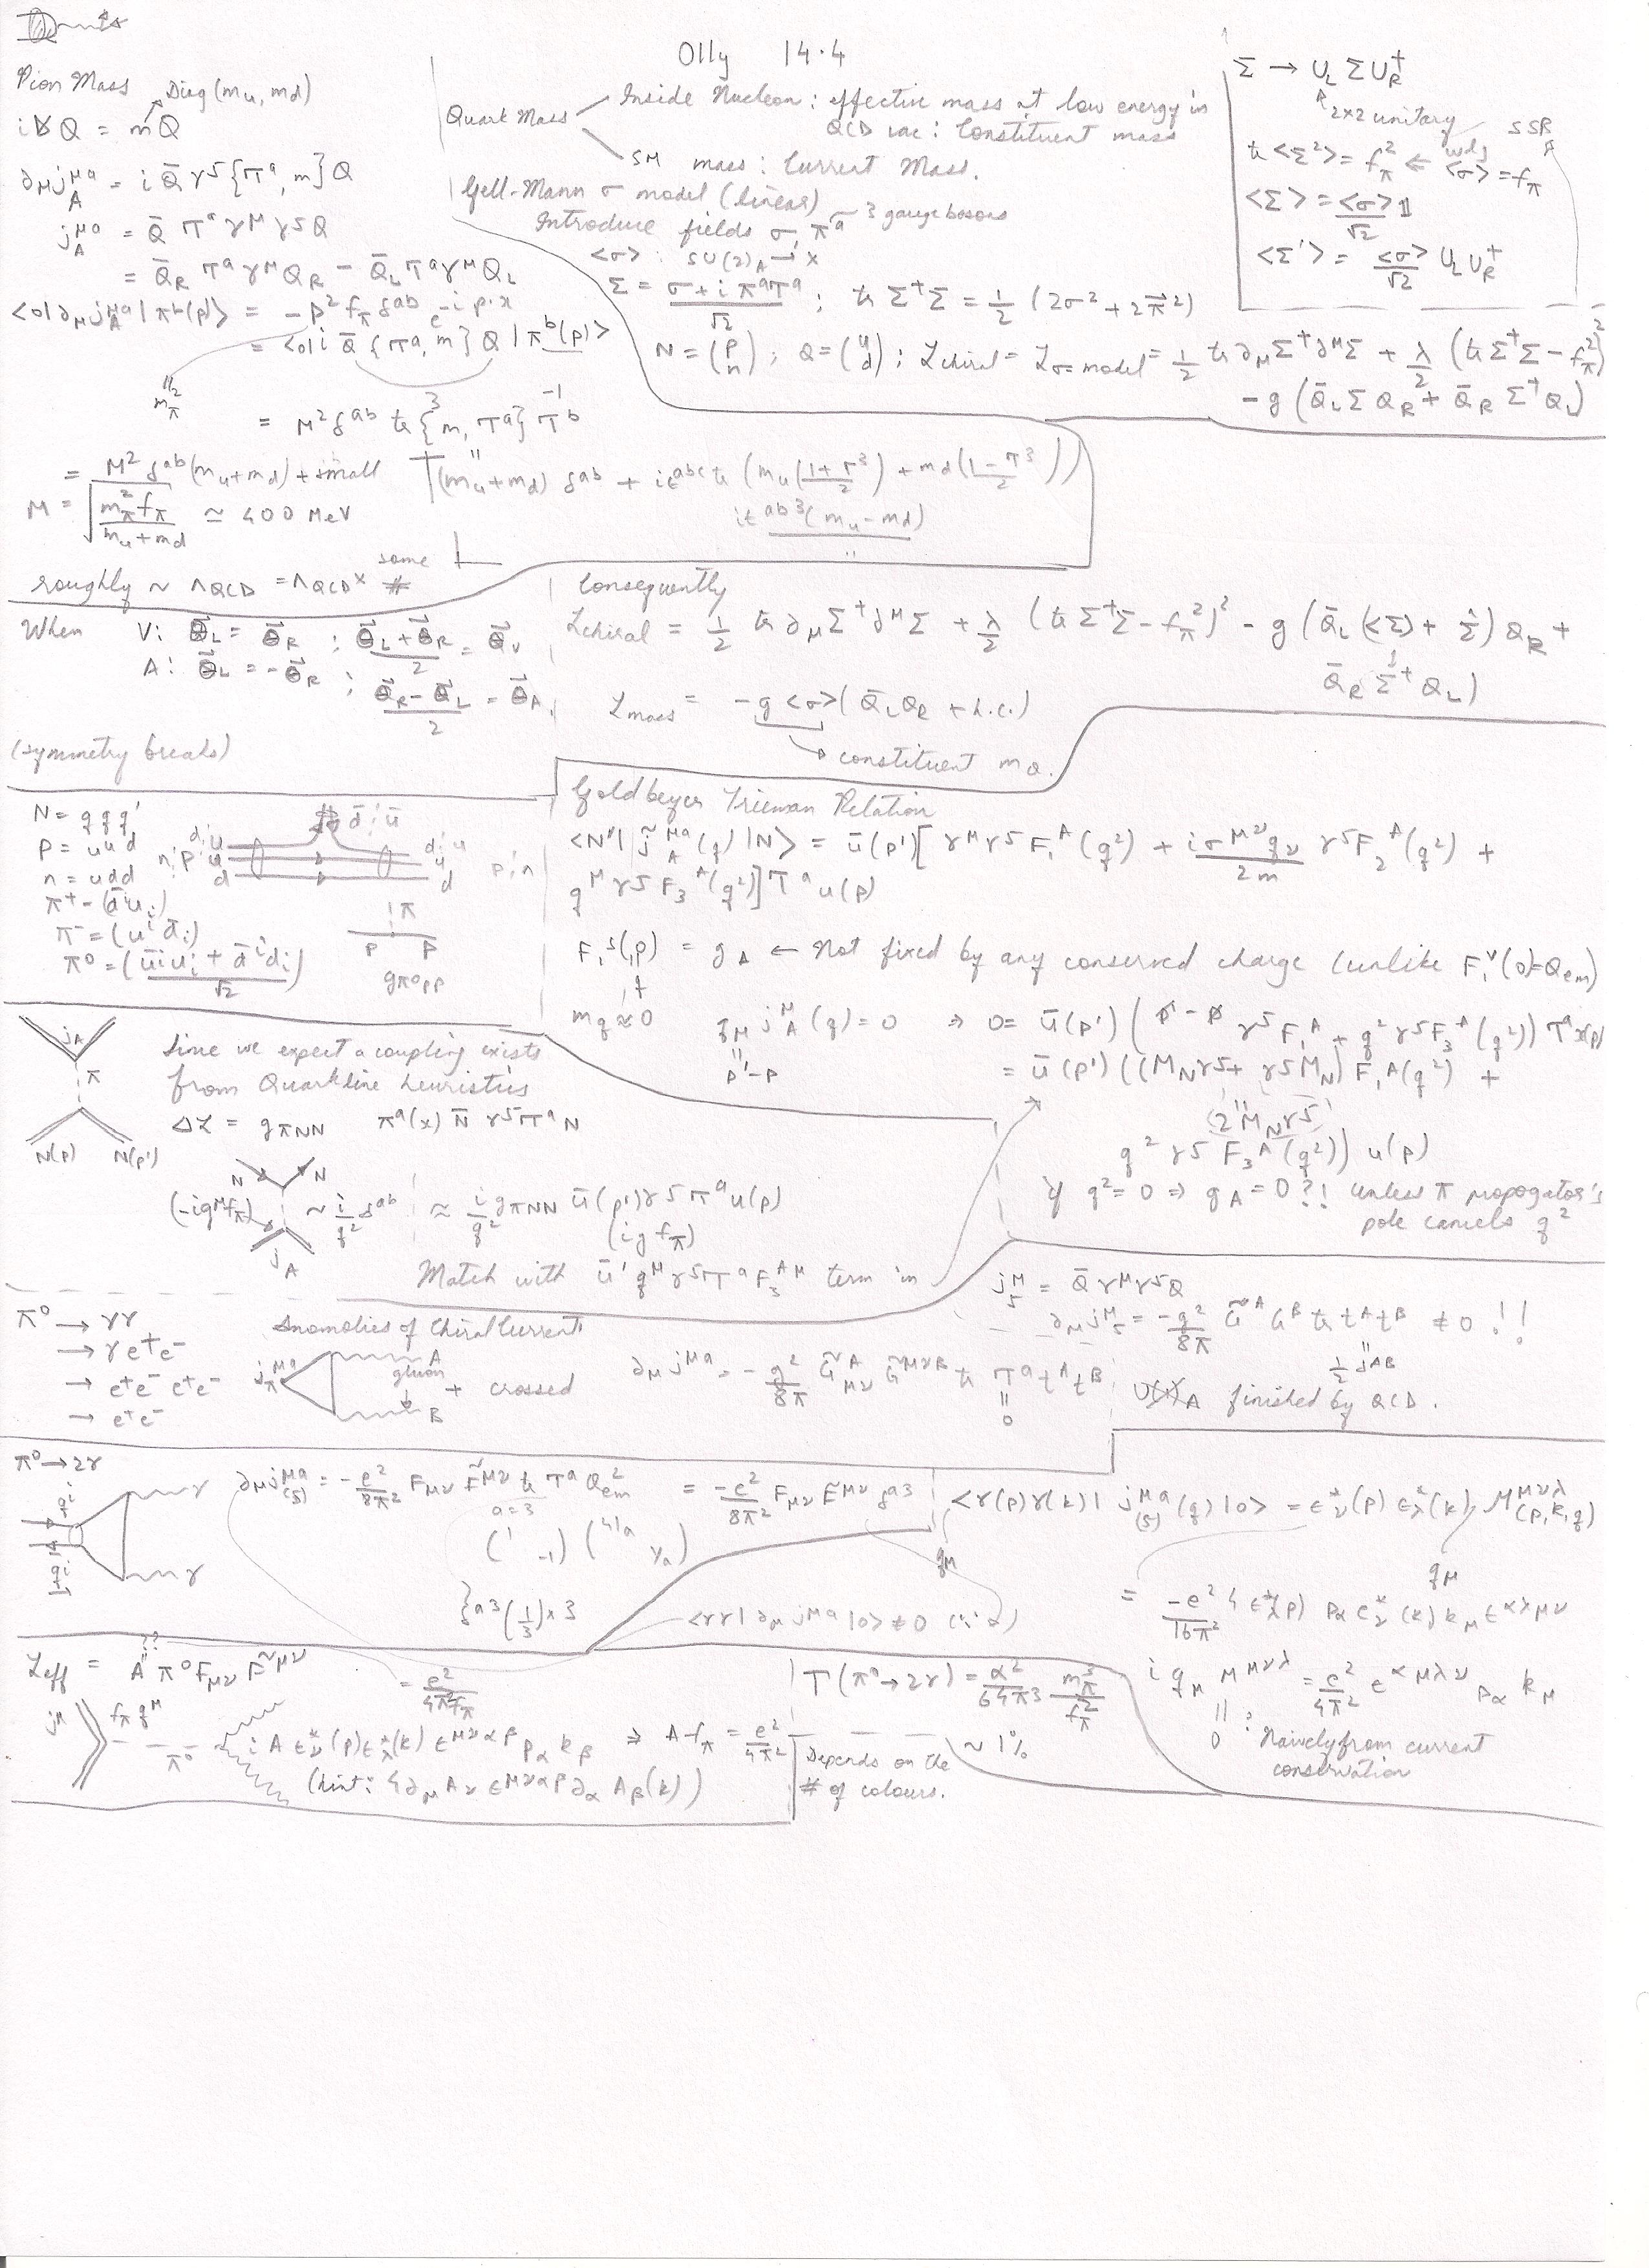 Olly 14.4
Pion Mass Diag (mu, md)
i D̸ Q = mQ
∂μ jA^μa = i Q̄ γ5 {τ^a, m} Q
jA^μa = Q̄ τ^a γ^μ γ5 Q
= Q̄R τ^a γ^μ QR − Q̄L τ^a γ^μ QL
<0|∂μ jA^μa|π^b(p)> = −p² fπ δ^ab e^−ip·x
= <0|i Q̄ {τ^a, m} Q|π^b(p)>
mπ²
= M² δ^ab tr {m, τ^a} τ^b
= M² δ^ab (mu+md) + small
(mu+md) δ^ab + iε^abc tr (mu (1+τ³)/2 + md (1−τ³)/2)
iε^ab3 (mu−md)
M = √(mπ² fπ / (mu+md)) ≃ 400 MeV
roughly ~ ΛQCD = ΛQCD × some #
Quark Mass
Inside Nucleon : effective mass at low energy in
QCD vac : Constituent mass
SM mass : Current Mass.
Gell-Mann σ model (linear)
Introduce fields σ, π^a 3 gauge bosons
<σ> : SU(2)A → ×
Σ = (σ + i π^a τ^a)/√2 ; tr Σ†Σ = 1/2 (2σ² + 2π⃗²)
N = (p n) ; Q = (u d) ; ℒchiral = ℒσ-model = 1/2 tr ∂μΣ†∂^μΣ + λ/2 (tr Σ†Σ − fπ²)²
− g (Q̄L Σ QR + Q̄R Σ† QL)
Σ → UL Σ UR†
2×2 unitary
SSB
tr <Σ²> = fπ² ⇐ <σ> = fπ
<Σ> = <σ>/√2 𝟙
<Σ'> = <σ>/√2 UL UR†
When V: θ⃗L = θ⃗R ; (θ⃗L + θ⃗R)/2 = θ⃗V
A: θ⃗L = −θ⃗R ; (θ⃗R − θ⃗L)/2 = θ⃗A
(symmetry breaks)
Consequently
ℒchiral = 1/2 tr ∂μΣ†∂^μΣ + λ/2 (tr Σ†Σ − fπ²)² − g (Q̄L (<Σ> + Σ̂) QR +
Q̄R Σ† QL)
ℒmass = −g <σ> (Q̄L QR + h.c.)
→ constituent mQ.
N = qqq'
p = uud
n = udd
π+ = (d̄^i ui)
π− = (u^i d̄i)
π0 = (ū^i ui + d̄^i di)/√2
d̄ ; ū
d;u
u
d
n;p
d;u
u
d
p;n
π
p p
gπ0pp
Goldbeyer Trieman Relation
<N'| j̃A^μa (q) |N> = ū(p') [ γ^μ γ5 F1^A (q²) + iσ^μν qν / 2m γ5 F2^A (q²) +
q^μ γ5 F3^A (q²) ] τ^a u(p)
= gA ← Not fixed by any conserved charge (unlike F1^V(0)=Qem)
mq ≈ 0
qμ jA^μ (q) = 0 ⇒ 0 = ū(p') ( p̸' − p̸ γ5 F1^A + q² γ5 F3^A (q²) ) τ^a u(p)
p'−p
= ū(p') ((MN γ5 + γ5 MN) F1^A (q²) +
(2 MN γ5)
q² γ5 F3^A (q²)) u(p)
if q² = 0 ⇒ gA = 0 ?! unless π propogator's
pole cancels q²
jA
π
N(p) N(p')
Since we expect a coupling exists
from Quarkline heuristics
Δℒ = gπNN π^a(x) N̄ γ5 τ^a N
N N
(−iq^μ fπ) ~ i/q² δ^ab ≈ i/q² gπNN ū(p') γ5 τ^a u(p)
(i q fπ)
jA
Match with ū' q^μ γ5 τ^a F3^Aμ term in
π0 → γγ
→ γ e+e−
→ e+e− e+e−
→ e+e−
Anomolies of Chiral Current
A
gluon
B
+ crossed
∂μ j^μa = − g²/8π G̃μν^A G̃^μνB tr τ^a t^A t^B
0
j5^μ = Q̄ γ^μ γ5 Q
∂μ j5^μ = −g²/8π G̃^A G^B tr t^A t^B ≠ 0 !!
1/2 δ^AB
U(1)A finished by QCD.
π0 → 2γ
γ
γ
∂μ j(5)^μa = −e²/8π² Fμν F̃^μν tr τ^a Qem² = −e²/8π² Fμν F̃^μν δ^a3
a=3
(1 −1) (4/9 1/9)
}^a3 (1/3) × 3
qμ
<γγ| ∂μ j^μa |0> ≠ 0
<γ(p)γ(k)| j(5)^μa (q) |0> = ε*ν(p) ε*λ(k) ℳ^μνλ (p,k,q)
qμ
= −e²/16π² 4 ε*λ(p) pα ε*ν(k) kμ ε^αλμν
ℒeff = A π0 Fμν F̃^μν
??
= e²/4π²fπ
j^μ fπ q^μ
π0
i A ε*ν(p) ε*λ(k) ε^μναβ pα kβ ⇒ A fπ = e²/4π²
(hint: 4∂μ Aν ε^μναβ ∂α Aβ(k))
Γ(π0 → 2γ) = α²/64π³ mπ³/fπ²
~ 1%
Depends on the
# of colours.
i qμ M^μνλ = e²/4π² ε^αμλν pα kμ
0 : Naively from current
conservation